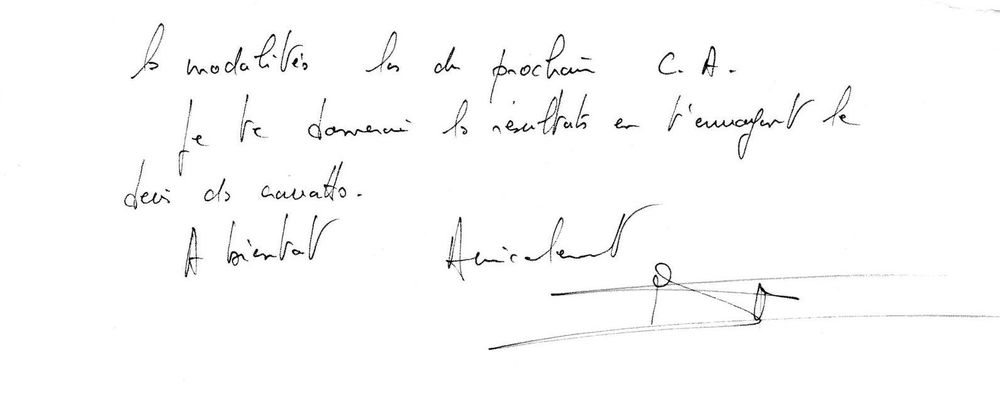 les modalités lors du prochain C.A.
Je te donnerai les résultats en t'envoyant le
devis des cravattes.
A bientot Amicalement